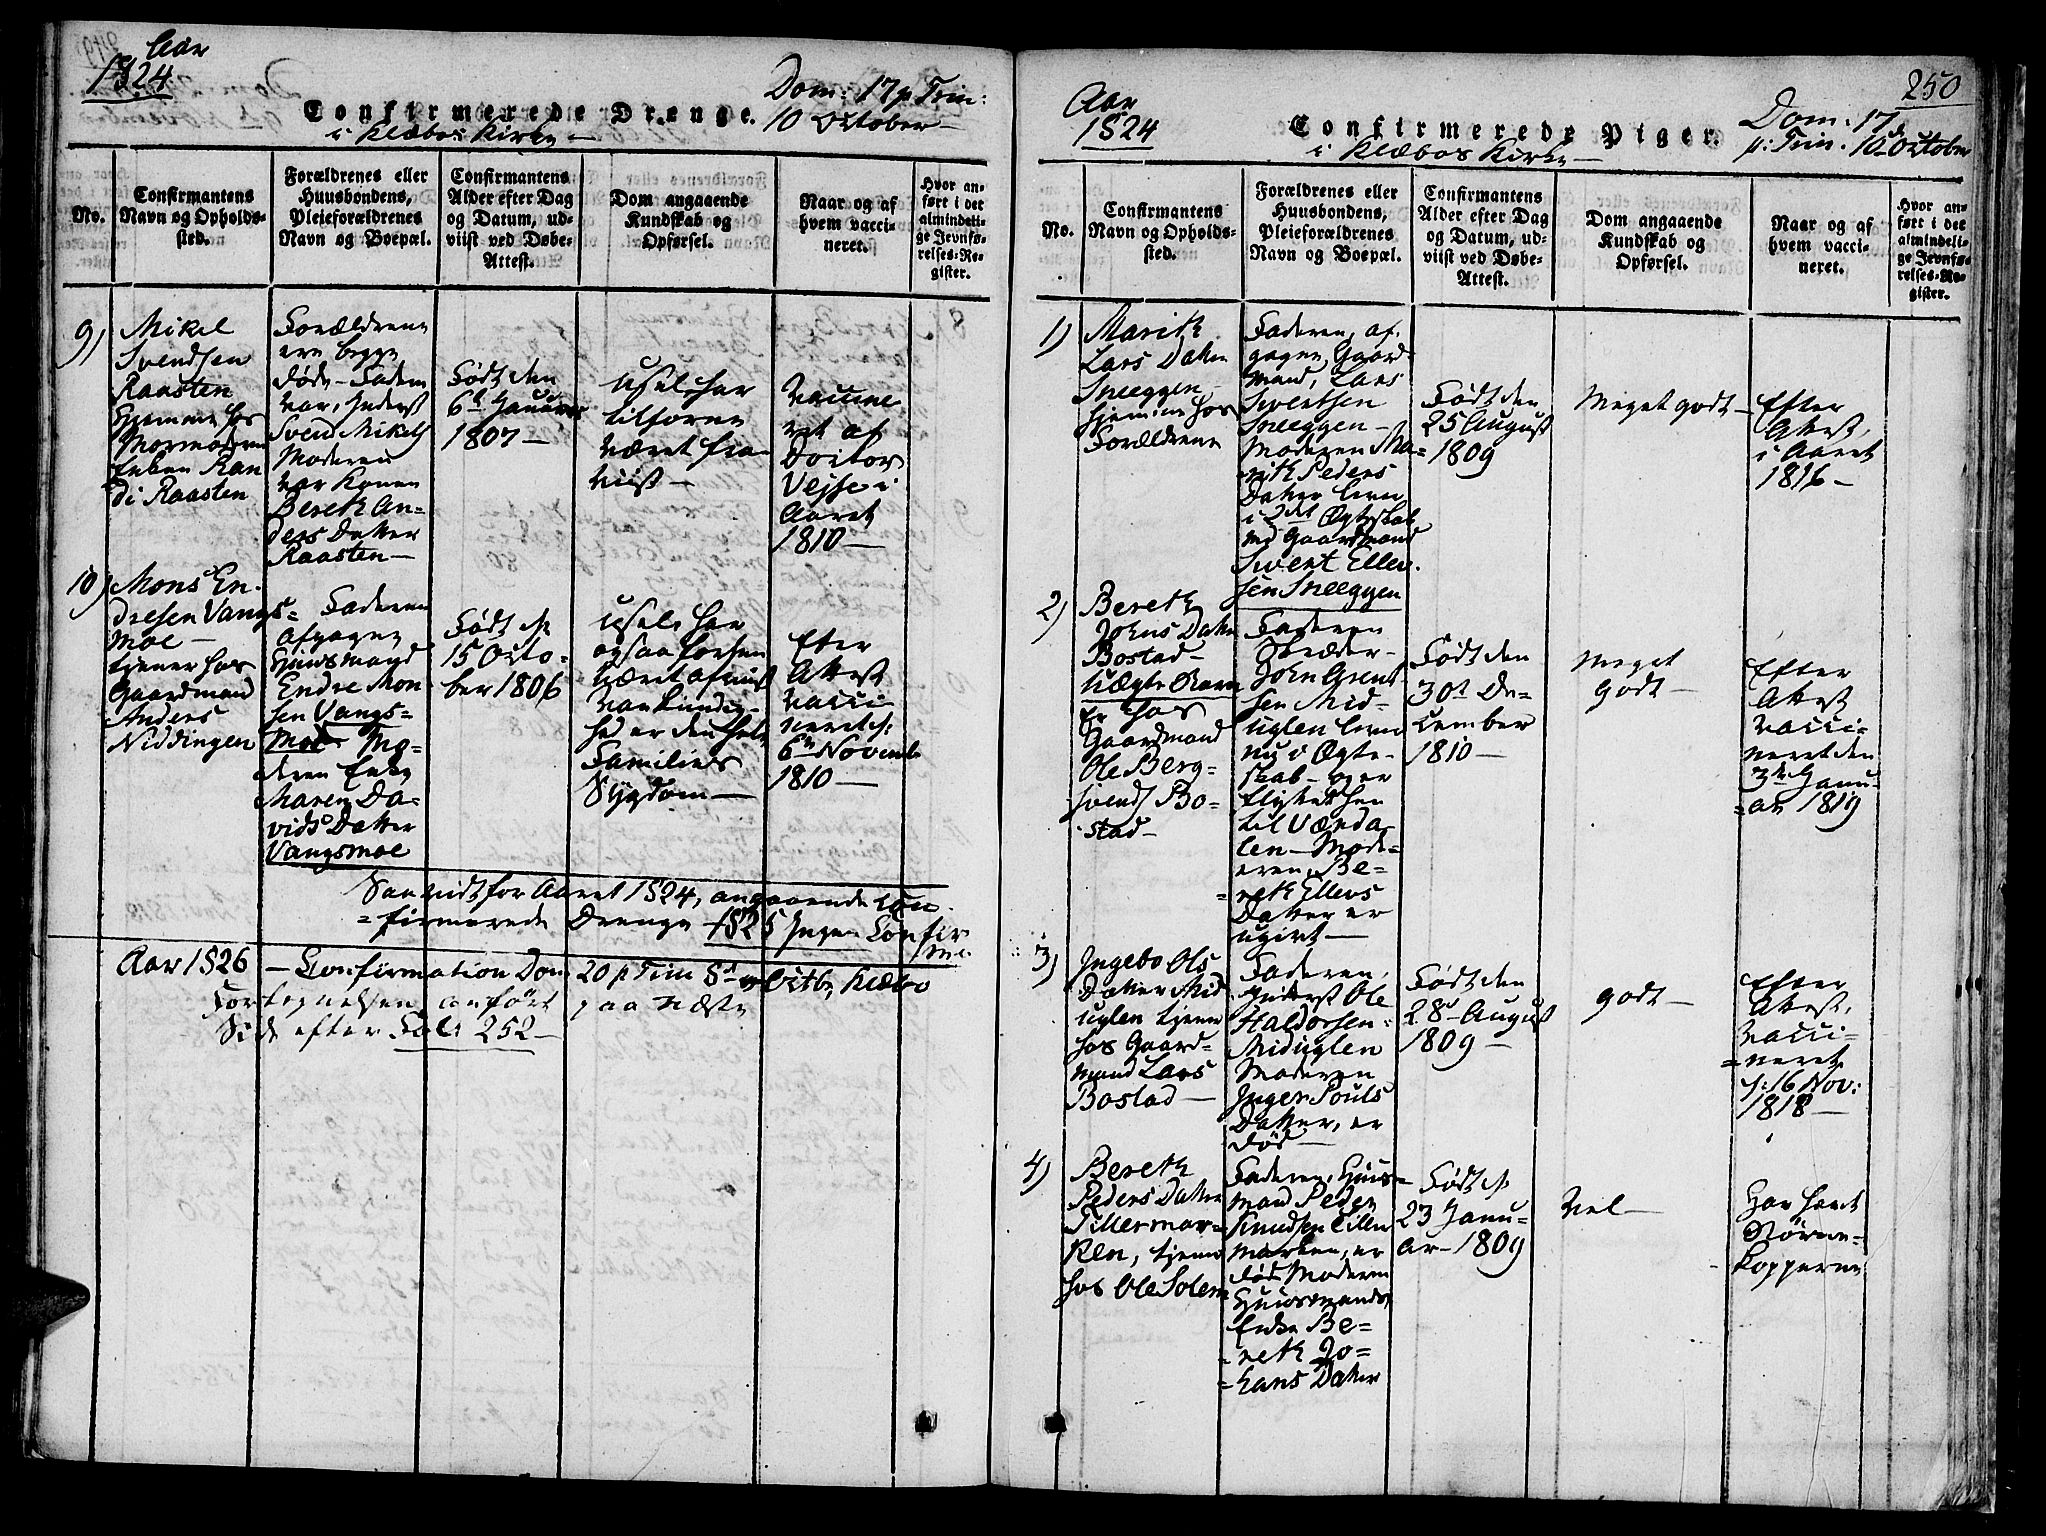 Aar
1824
Confirmerede Drenge.
i Klæboe Kirke
Dom: 17 p Trin:
10 October
No.
Confirmantens
Navn og Opholds-
sted.
Forældrenes eller
Huusbondens,
Pleieforældrenes
Navn og Boepæl.
Confirmantens
Alder efter Dag
og Datum, ud-
viist ved Døbe-
Attest.
Dom angaaende
Kundskab og
Opførsel.
Naar og af
hvem vacci-
neret.
Hvor an-
ført i det
almindeli-
ge Jevnfø-
relses-Re-
gister.
9)
Mikel
Svendsen
Raasten
hjemme hos
Mormoderen
Enken Ran
di Raasten
Forældrene
ere begge
døde - Faderen
var, Inderst
Svend Mikels
Moderen
var Konen
Bereth An-
ders Datter
Raasten
Født den
6 Januar
1807
usel har
tilforne
været fra-
viist
Vaccine
ret af
Doctor
Vejse i
Aaret
1810
10)
Mons En-
dresen Vangs-
moe
tiener hos
Gaardmand
Anders
Niddingen
Faderen
afgagne
Huusmand
Endre Mon
sen Vangs-
Moe Mo-
deren Enke
Maren Da-
vids Datter
Vangsmoe
Født d:
15 Octo-
ber 1806
usel, har
ogsaa forhen
været afviist
Vankundig-
hed er den hele
Families
Sygdom
Efter
Attest
vacci
neret d:
6 Novemb
1810
Saavidt for Aaret 1824, angaaende Con-
firmerede Drenge 1825 Ingen Confir
Aar 1826 - Confirmation Dom 20 p Trin 8 Octb, Klæbo
Fortegnelsen anført paa næste
Side efter Fol: 252
250
Aar
1824
Confirmerede Piger.
i Klæboe Kirke
Dom: 17
p: Trin. 10 October
No.
Confirmantens
Navn og Opholds-
sted.
Forældrenes eller
Huusbondens,
Pleieforældrenes
Navn og Boepæl.
Confirmantens
Alder efter Dag
og Datum, ud-
viist ved Døbe-
Attest.
Dom angaaende
Kundskab og
Opførsel.
Naar og af
hvem vacci-
neret.
Hvor an-
ført i det
almindeli-
ge Jevnfø-
relses-Re-
gister.
1)
Marith
Lars Datter
Sneeggen
hjemme hos
Forældrene
Faderen, af-
gagne, Gaard-
mand, Lars
Sivertsen
Sneeggen-
Moderen Ma-
rith Peders
Datter lever
i 2det Ægteskab
med Gaardmand
Sivert Ellev-
sen Sneeggen
Født den
25 August
1809
Meget godt
Efter
Attest,
i Aaret
1816
2)
Bereth
Johns Datter
Bostad
Uægte Barn
er hos
Gaardmand
Ole Berg-
svends Bo-
stad
Faderen
Skræder
John Arent-
sen Mid-
uglen lever
nu i Ægte-
skab - og er
flyttet hen
til Værda-
len - Mode-
eren, Be-
reth Ellevs
Datter er
ugivt
Født den
30 De-
cember
1810
Meget
Godt
Efter
Attest
vacci-
neret den
3 Janu-
ar 1819
3)
Ingebo Ols
Datter Mid
uglen tjener
hos Gaard-
mand Lars
Bostad
Faderen,
Inderst Ole
Haldorsen
Miduglen
Moderen
Inger Pouls
Datter, er
død
Født den
28 August
1809
godt
Efter
Attest,
vacci-
neret
d: 16 Nov:
1818
4)
Bereth
Peders Datter
Tillermar-
ken, tjener
hos Ole Solem
Faderen, Huus-
mand Peder
Knudsen Tiller
marken, er
død Moderen
Huusmands
Enke Be-
reth Jo-
hans Datter
Født d:
23 Janu-
ar 1809
Vel
Har havt
Børne-
kopperne